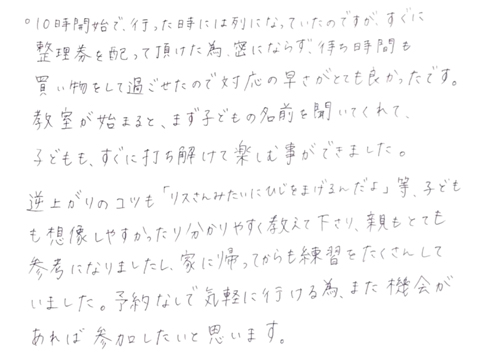 ○10時開始で、行った時には列になっていたのですが、すぐに
整理券を配って頂けた為、密にならず、待ち時間も
買い物をして過ごせたので対応の早さがとても良かったです。
教室が始まると、まず子どもの名前を聞いてくれて、
子どもも、すぐに打ち解けて楽しむ事ができました。
逆上がりのコツも「リスさんみたいにひじをまげるんだよ」等、子ども
も想像しやすかったり分かりやすく教えて下さり、親もとても
参考になりましたし、家に帰ってからも練習をたくさんして
いました。予約なしで気軽に行ける為、また機会が
あれば参加したいと思います。